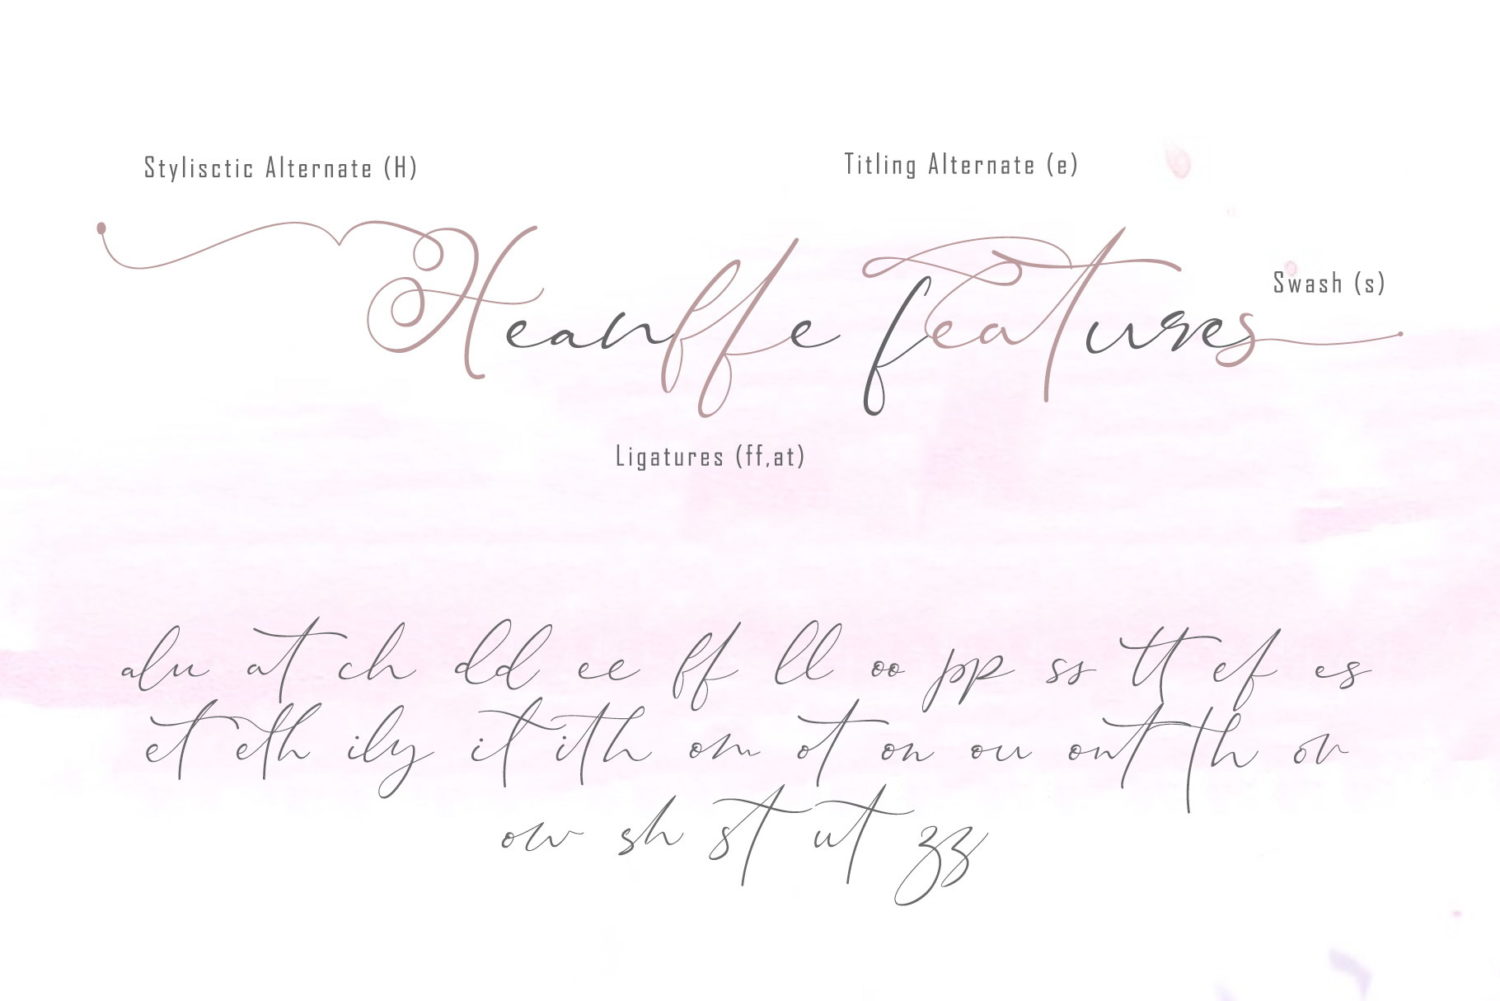 Stylisctic Alternate (H)
Titling Alternate (e)
Heanffe features
Swash (s)
Ligatures (ff,at)
alu at ch dd ee ff ll oo pp ss tt ef es
et eth ily it ith om ot on ou ont th or
ow sh st ut zz